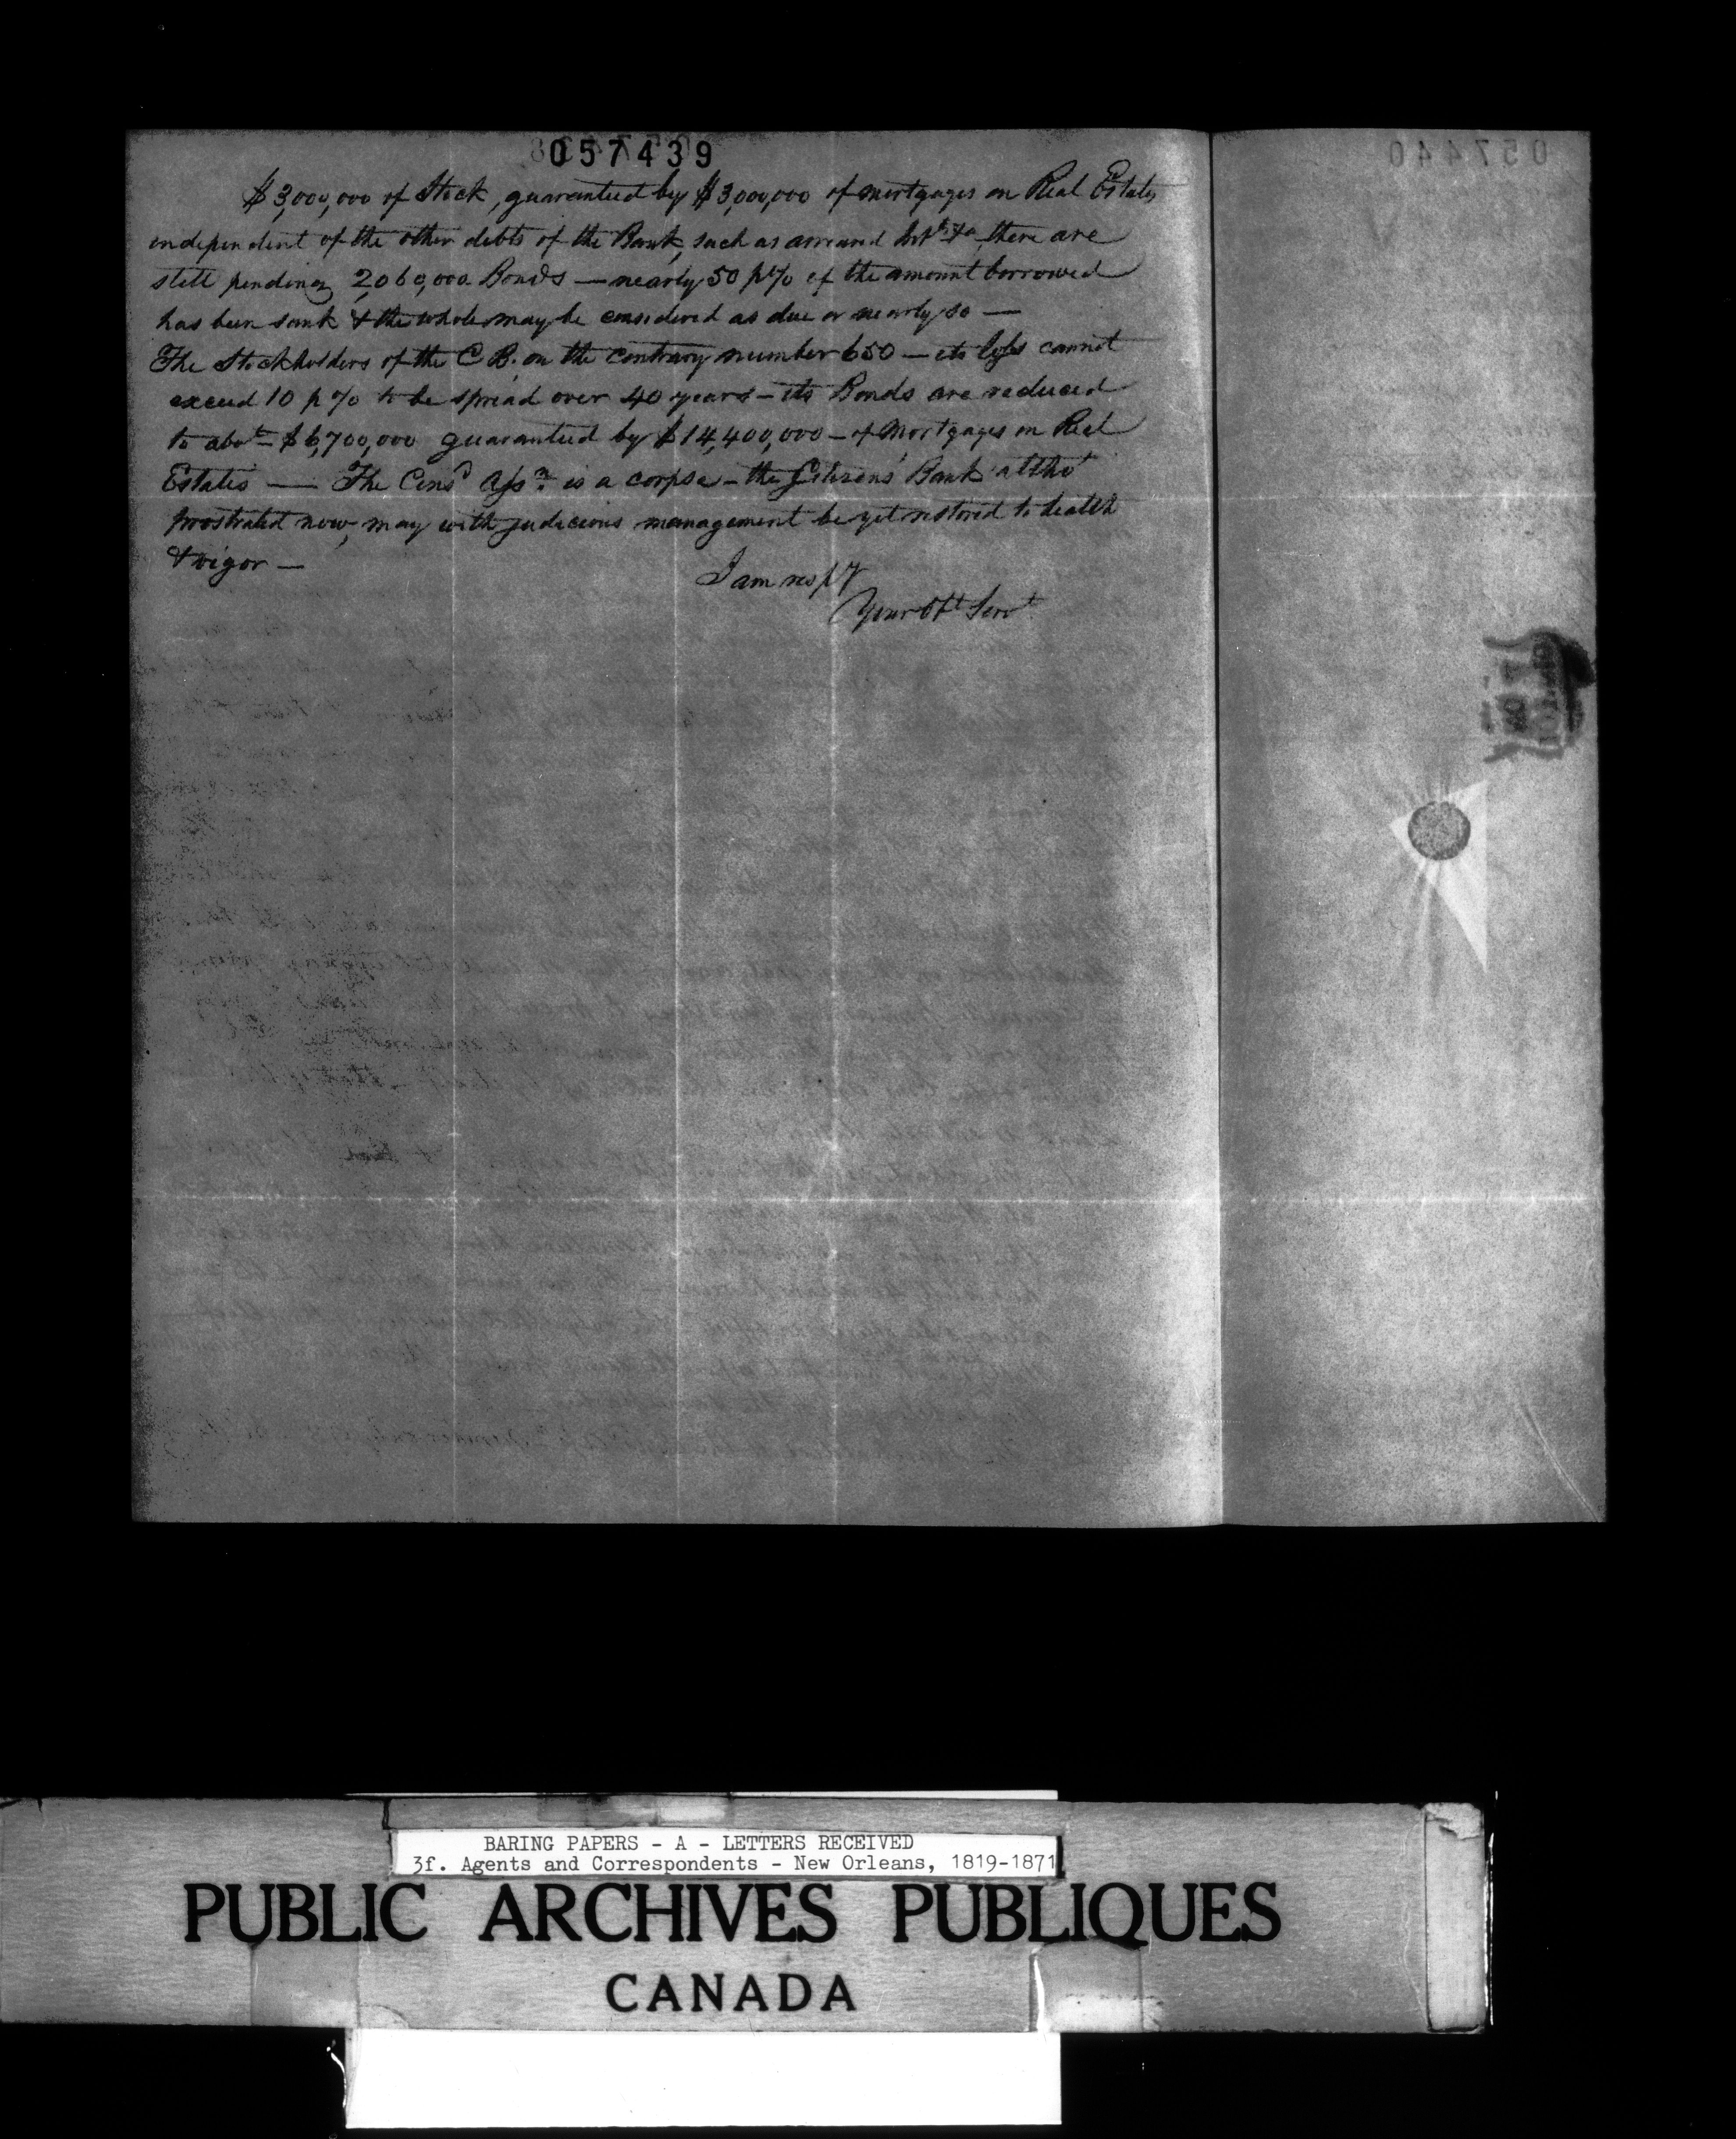 057439
$3,000,000 of Stock, guaranteed by $3,000,000 of mortgages on Real Estates
independent of the other debts of the Bank, such as arreared Intt. &a there are
still pending 2,060,000 Bonds — nearly 50 p% of the amount borrowed
has been sunk & the whole may be considered as due or nearly so —
The Stockholders of the C. B. on the contrary number 650 — its loss cannot
exceed 10 p% to be spread over 40 years — its Bonds are reduced
to abot. $6,700,000 guaranteed by $14,400,000 — of Mortgages on Real
Estates — The Consd Assn. is a corpse — the Citizens' Bank altho'
prostrated now, may with judicious management be yet restored to health
& vigor —
I am resp'y
Your Obt Servt
057440
BARING PAPERS - A - LETTERS RECEIVED
3f. Agents and Correspondents - New Orleans, 1819-1871
PUBLIC ARCHIVES PUBLIQUES
CANADA